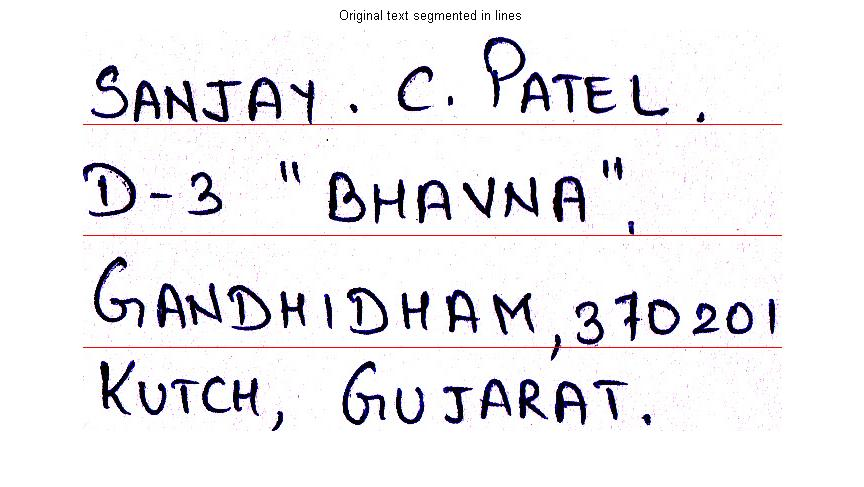 Original text segmented in lines
SANJAY. C. PATEL.
D-3 "BHAVNA",
GANDHIDHAM, 370201
KUTCH, GUJARAT.